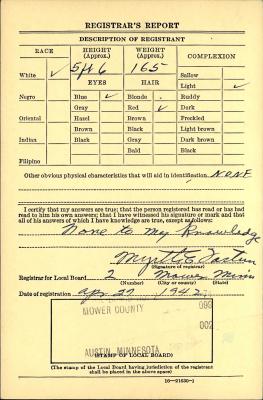 REGISTRAR'S REPORT
DESCRIPTION OF REGISTRANT
RACE
HEIGHT (Approx.)
WEIGHT (Approx.)
COMPLEXION
5 ft 6
165
White ✓
EYES
HAIR
Sallow
Light ✓
Negro
Blue ✓
Blonde
Ruddy
Gray
Red ✓
Dark
Oriental
Hazel
Brown
Freckled
Brown
Black
Light brown
Indian
Black
Gray
Dark brown
Bald
Black
Filipino
Other obvious physical characteristics that will aid in identification NONE
I certify that my answers are true; that the person registered has read or has had
read to him his own answers; that I have witnessed his signature or mark and that
all of his answers of which I have knowledge are true, except as follows:
None to my knowledge
Myrtle E
(Signature of registrar)
Registrar for Local Board 2 Mower Minn
(Number) (City or county) (State)
Date of registration Apr 27 1942
MOWER COUNTY
002
AUSTIN, MINNESOTA
(STAMP OF LOCAL BOARD)
(The stamp of the Local Board having jurisdiction of the registrant
shall be placed in the above space.)
16—21630-1